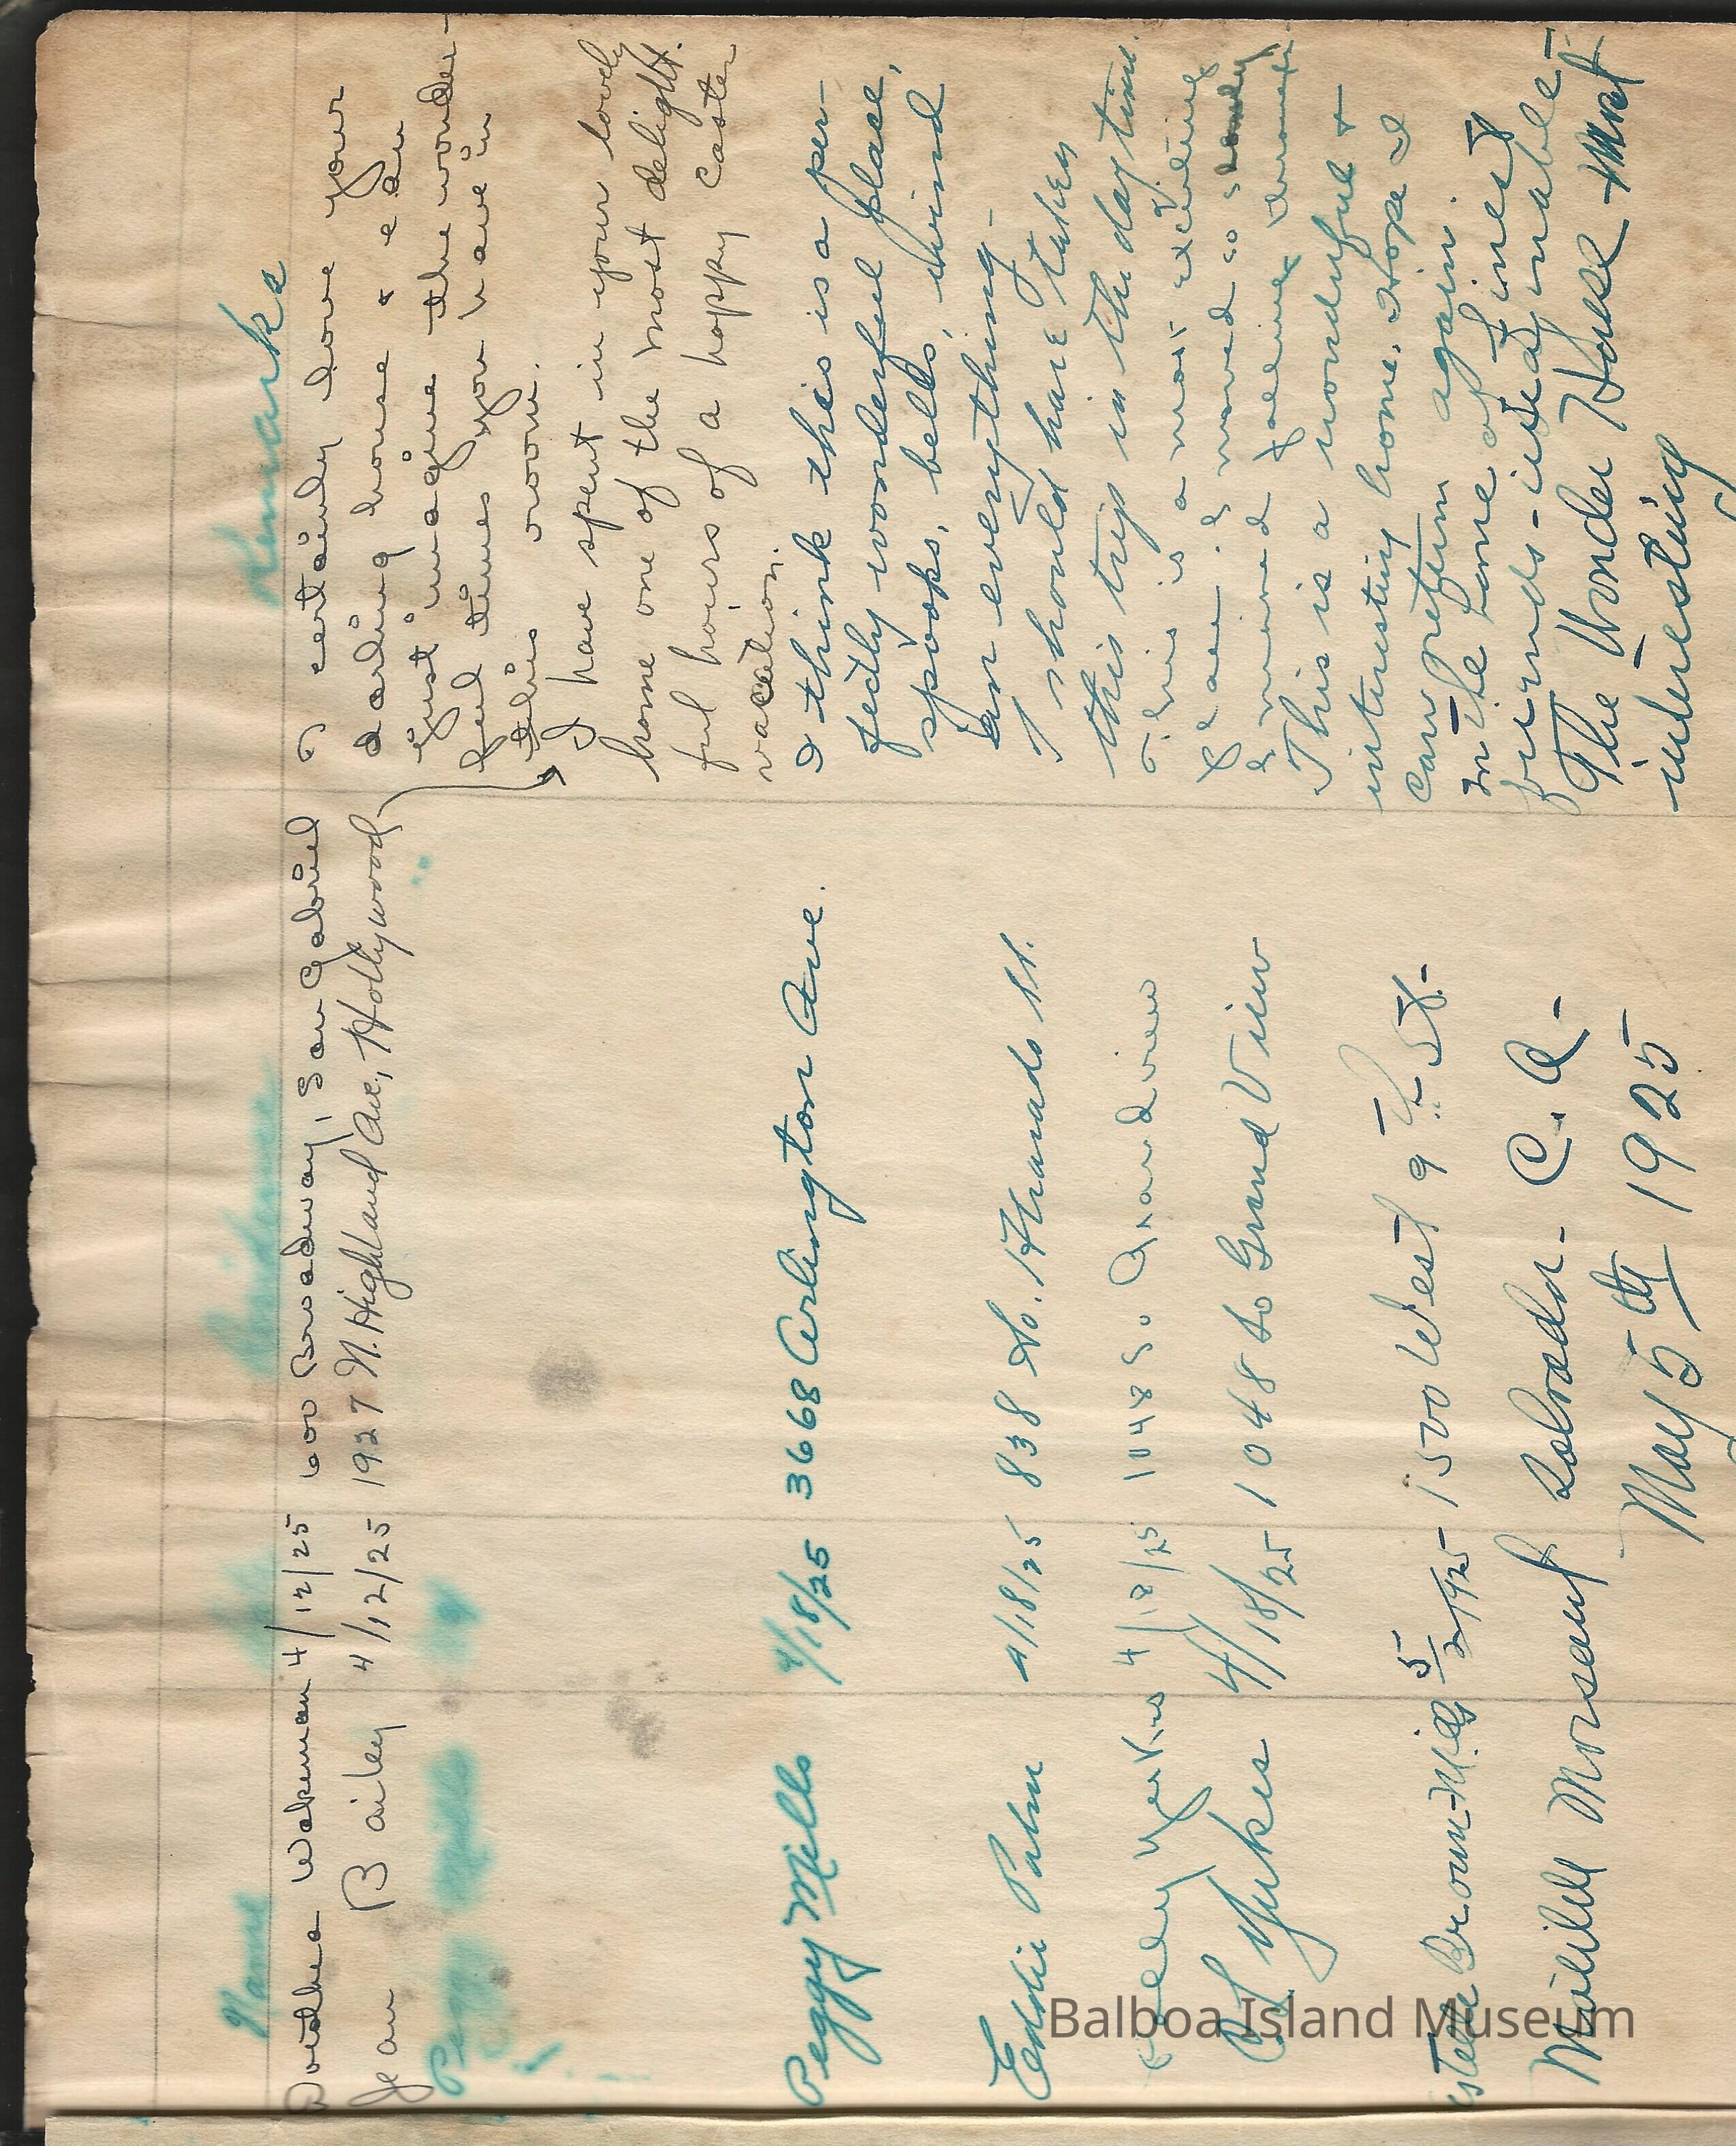 Name Date Residence Remarks
Dorothea Wakeman 4/12/25 600 Broadway, San Gabriel I certainly love your
Jean Bailey 4/12/25 1927 N. Highland Ave, Hollywood darling house & can
just imagine the wonder-
ful times you have in
this room.
I have spent in your lovely
home one of the most delight-
ful hours of a happy Easter
vacation.
Peggy
Peggy Mills 4/18/25 3668 Arlington Ave. I think this is a per-
fectly wonderful place,
spooks, bells, wind
an everything-
Eddie Palm 4/18/25 838 So. I should have taken
this trip in the day time.
Yerkes 4/18/25 1048 So Grandview This is a most exciting
place. I moved so
C S Yerkes 4/18/25 1048 So Grand View This is a wonderful &
interesting home. Hope I
can return again.
Estelle Brown-Mills 5/2/1925 1500 West 9th St. In the home of finest
friends-
Colorado- C. A- The Wonder House - Most
May 5th 1925 interesting
Balboa Island Museum